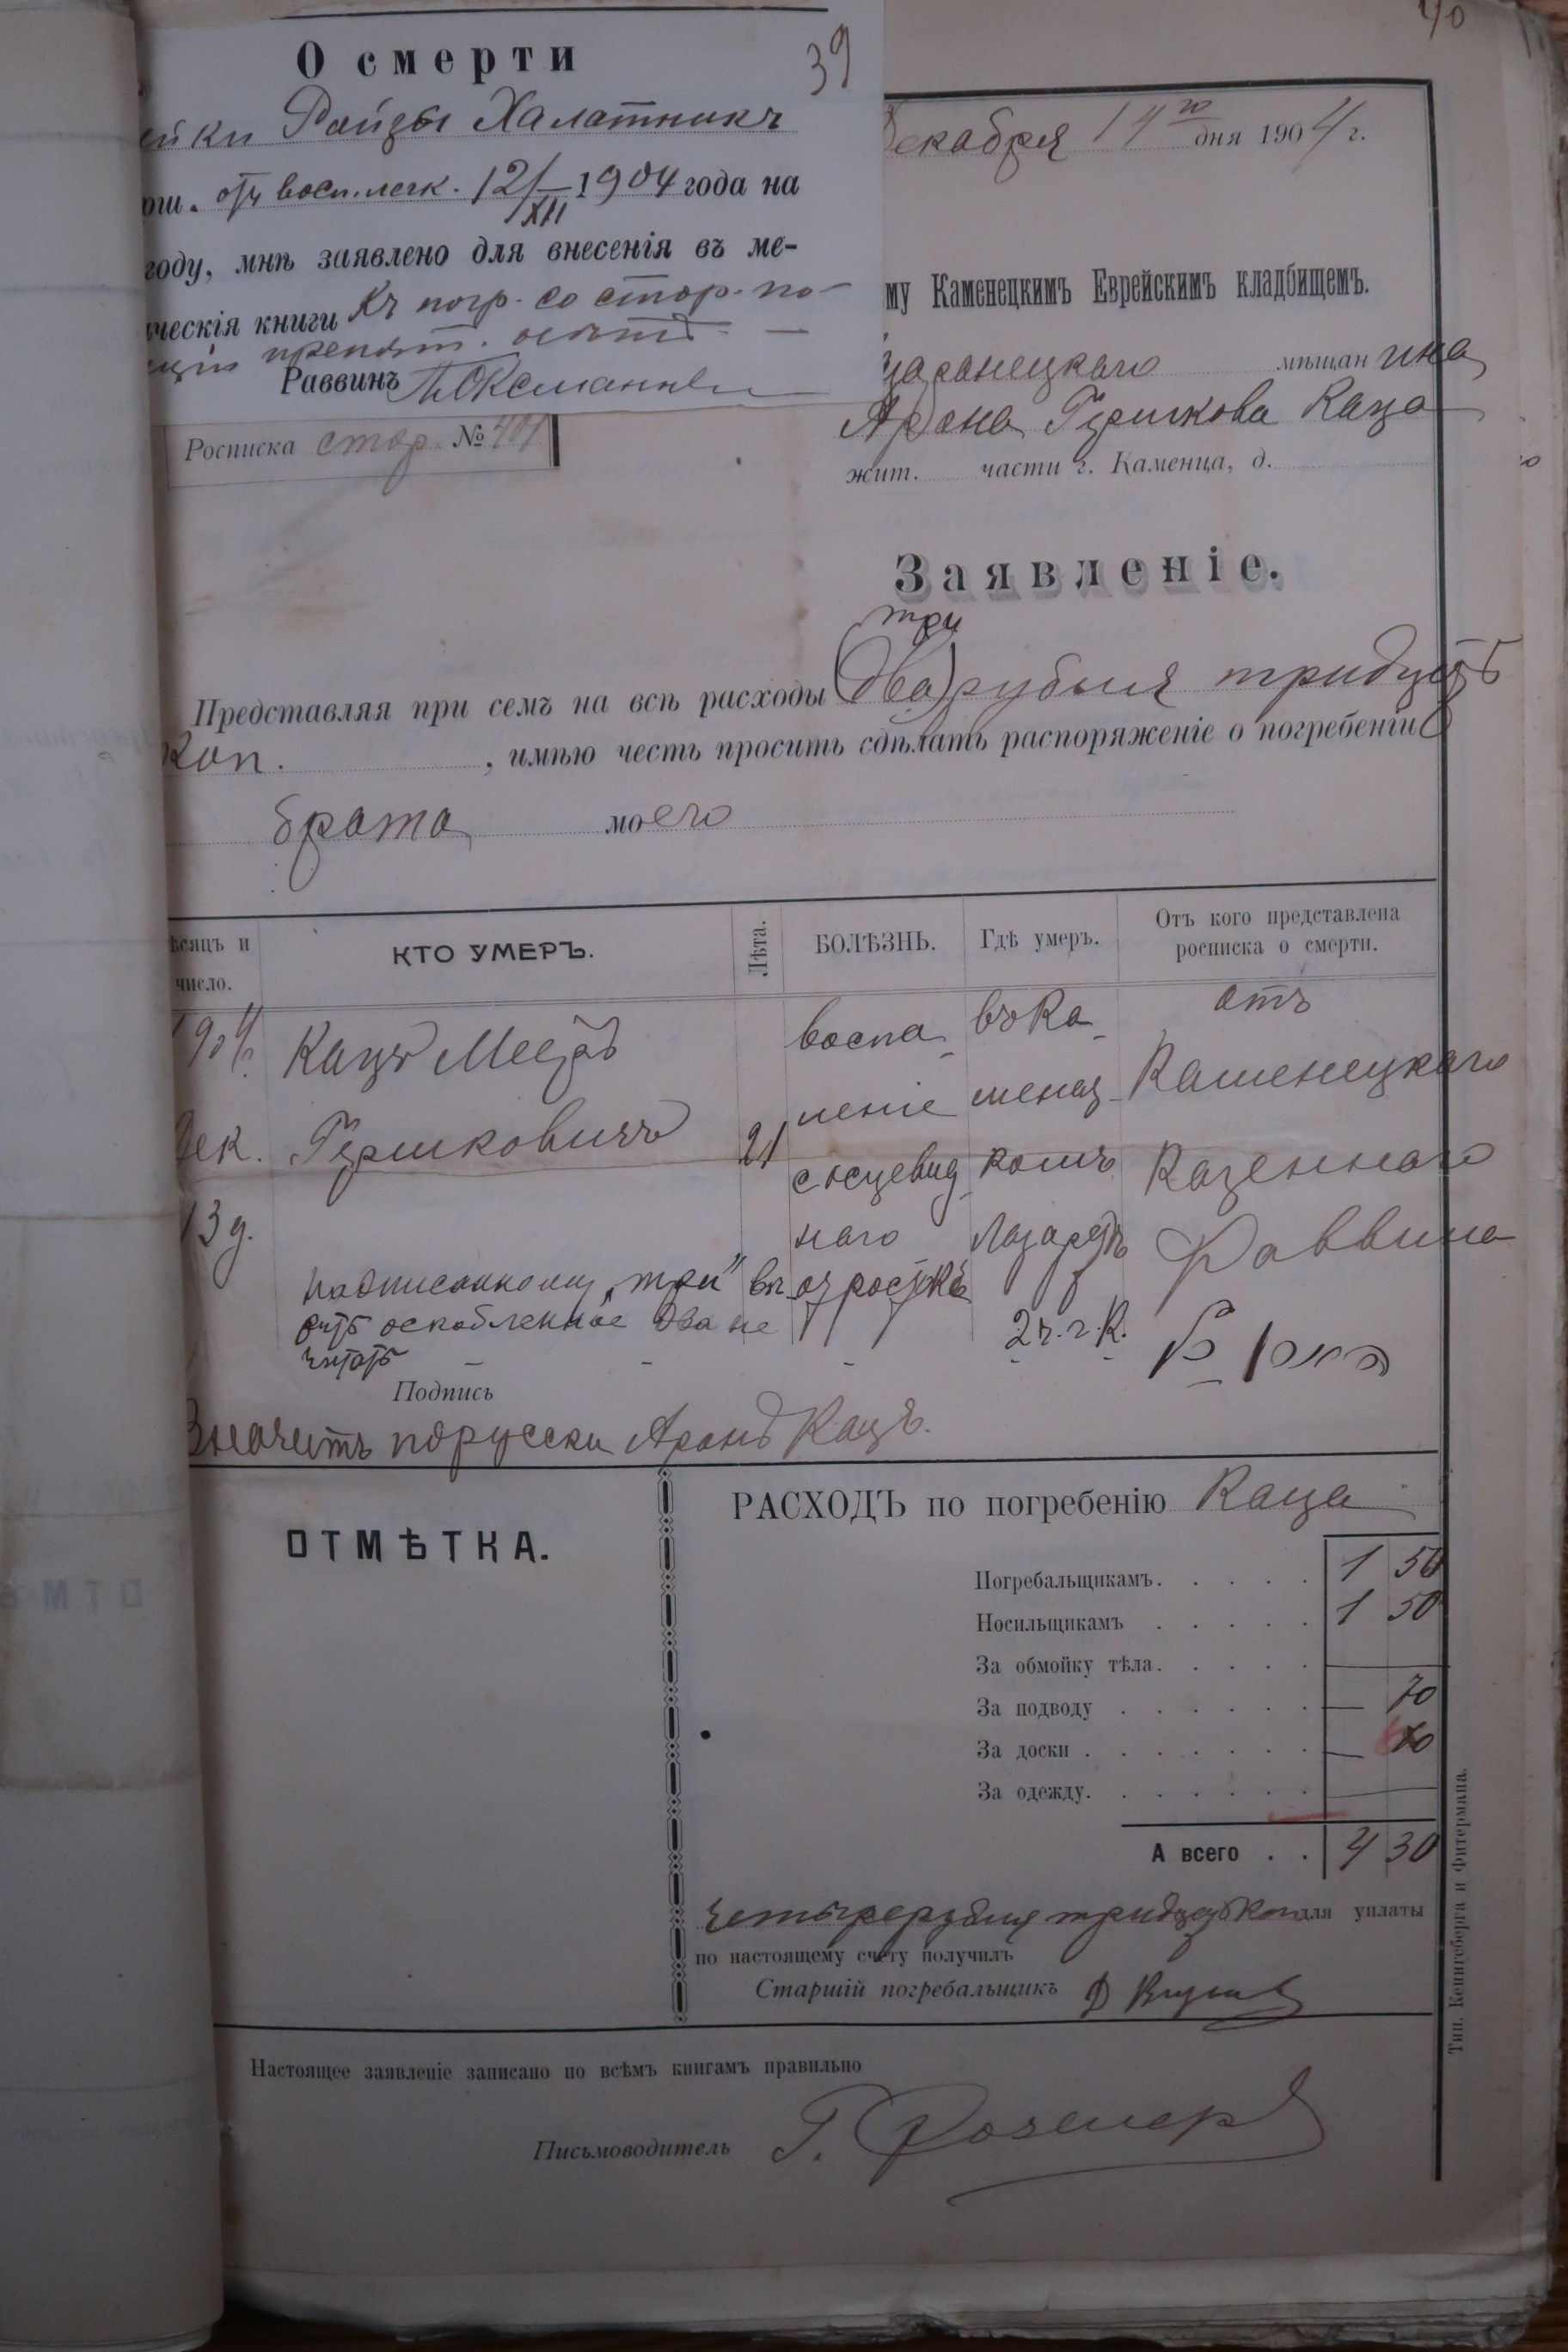 О смерти
39
ейки Ройзы Халатникъ
ош. отъ восп. легк. 12/XII 1904 года на
году, мнѣ заявлено для внесенія въ ме-
ческія книги Къ погр. со стор. по-
препят.
Раввинъ
Росписка стор. №
40
Декабря 14го дня 1904 г.
му Каменецкимъ Еврейскимъ кладбищемъ.
мѣщанина
Арона Гершкова Каца
жит. части г. Каменца, д.
Заявленіе.
три
Представляя при семъ на всѣ расходы (два) рубля тридцать
коп. , имѣю честь просить сдѣлать распоряженіе о погребеніи
брата моего
ѣсяцъ и число.
КТО УМЕРЪ.
Лѣта.
БОЛѢЗНЬ.
Гдѣ умеръ.
Отъ кого представлена росписка о смерти.
1904 г. воспа въ Ка отъ
Кацъ Мееръ леніе менец Каменецкаго
Дек. Гершковичъ 21 слѣпевид комъ Казеннаго
13 д. наго Лазаретѣ Раввина
надписанному „три" вѣ отростка
рить оскобленное два не 2 ч. г. К.
читать
Подпись
Значитъ порусски Аронъ Кацъ.
ОТМѢТКА.
РАСХОДЪ по погребенію Каца
Погребальщикамъ. . . . . 1 50
Носильщикамъ . . . . . 1 50
За обмойку тѣла. . . . .
За подводу . . . . . . — 70
За доски . . . . . . . — 60
За одежду. . . . . . .
А всего . . 4 30
четыре рубля тридцать коп для уплаты
по настоящему счету получилъ
Старшій погребальщикъ
Настоящее заявленіе записано по всѣмъ книгамъ правильно
Письмоводитель Г. Розенер
Тип. Кенигсберга и Фитермана.